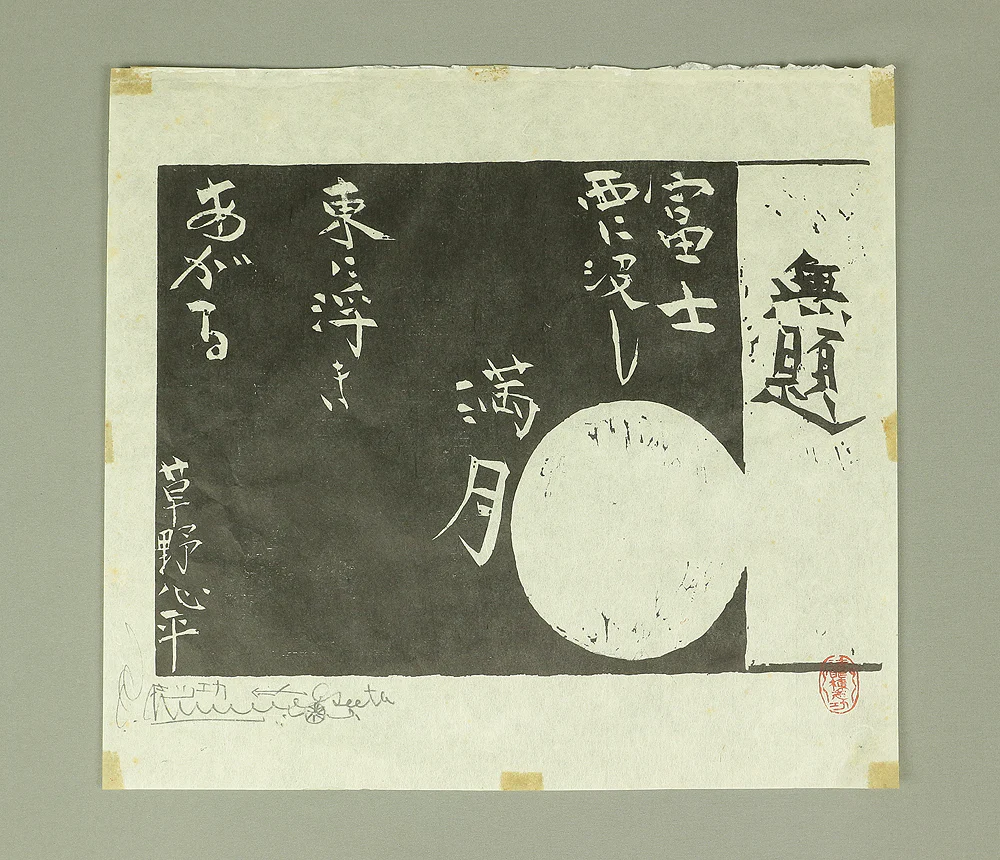 無題
富士
西に没し
満月
東に浮き
あがる
草野心平